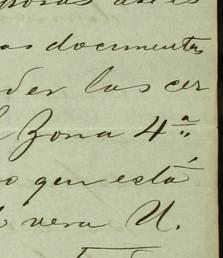 as documentos
der las cer
Zona 4ª
o qen está
vera U.